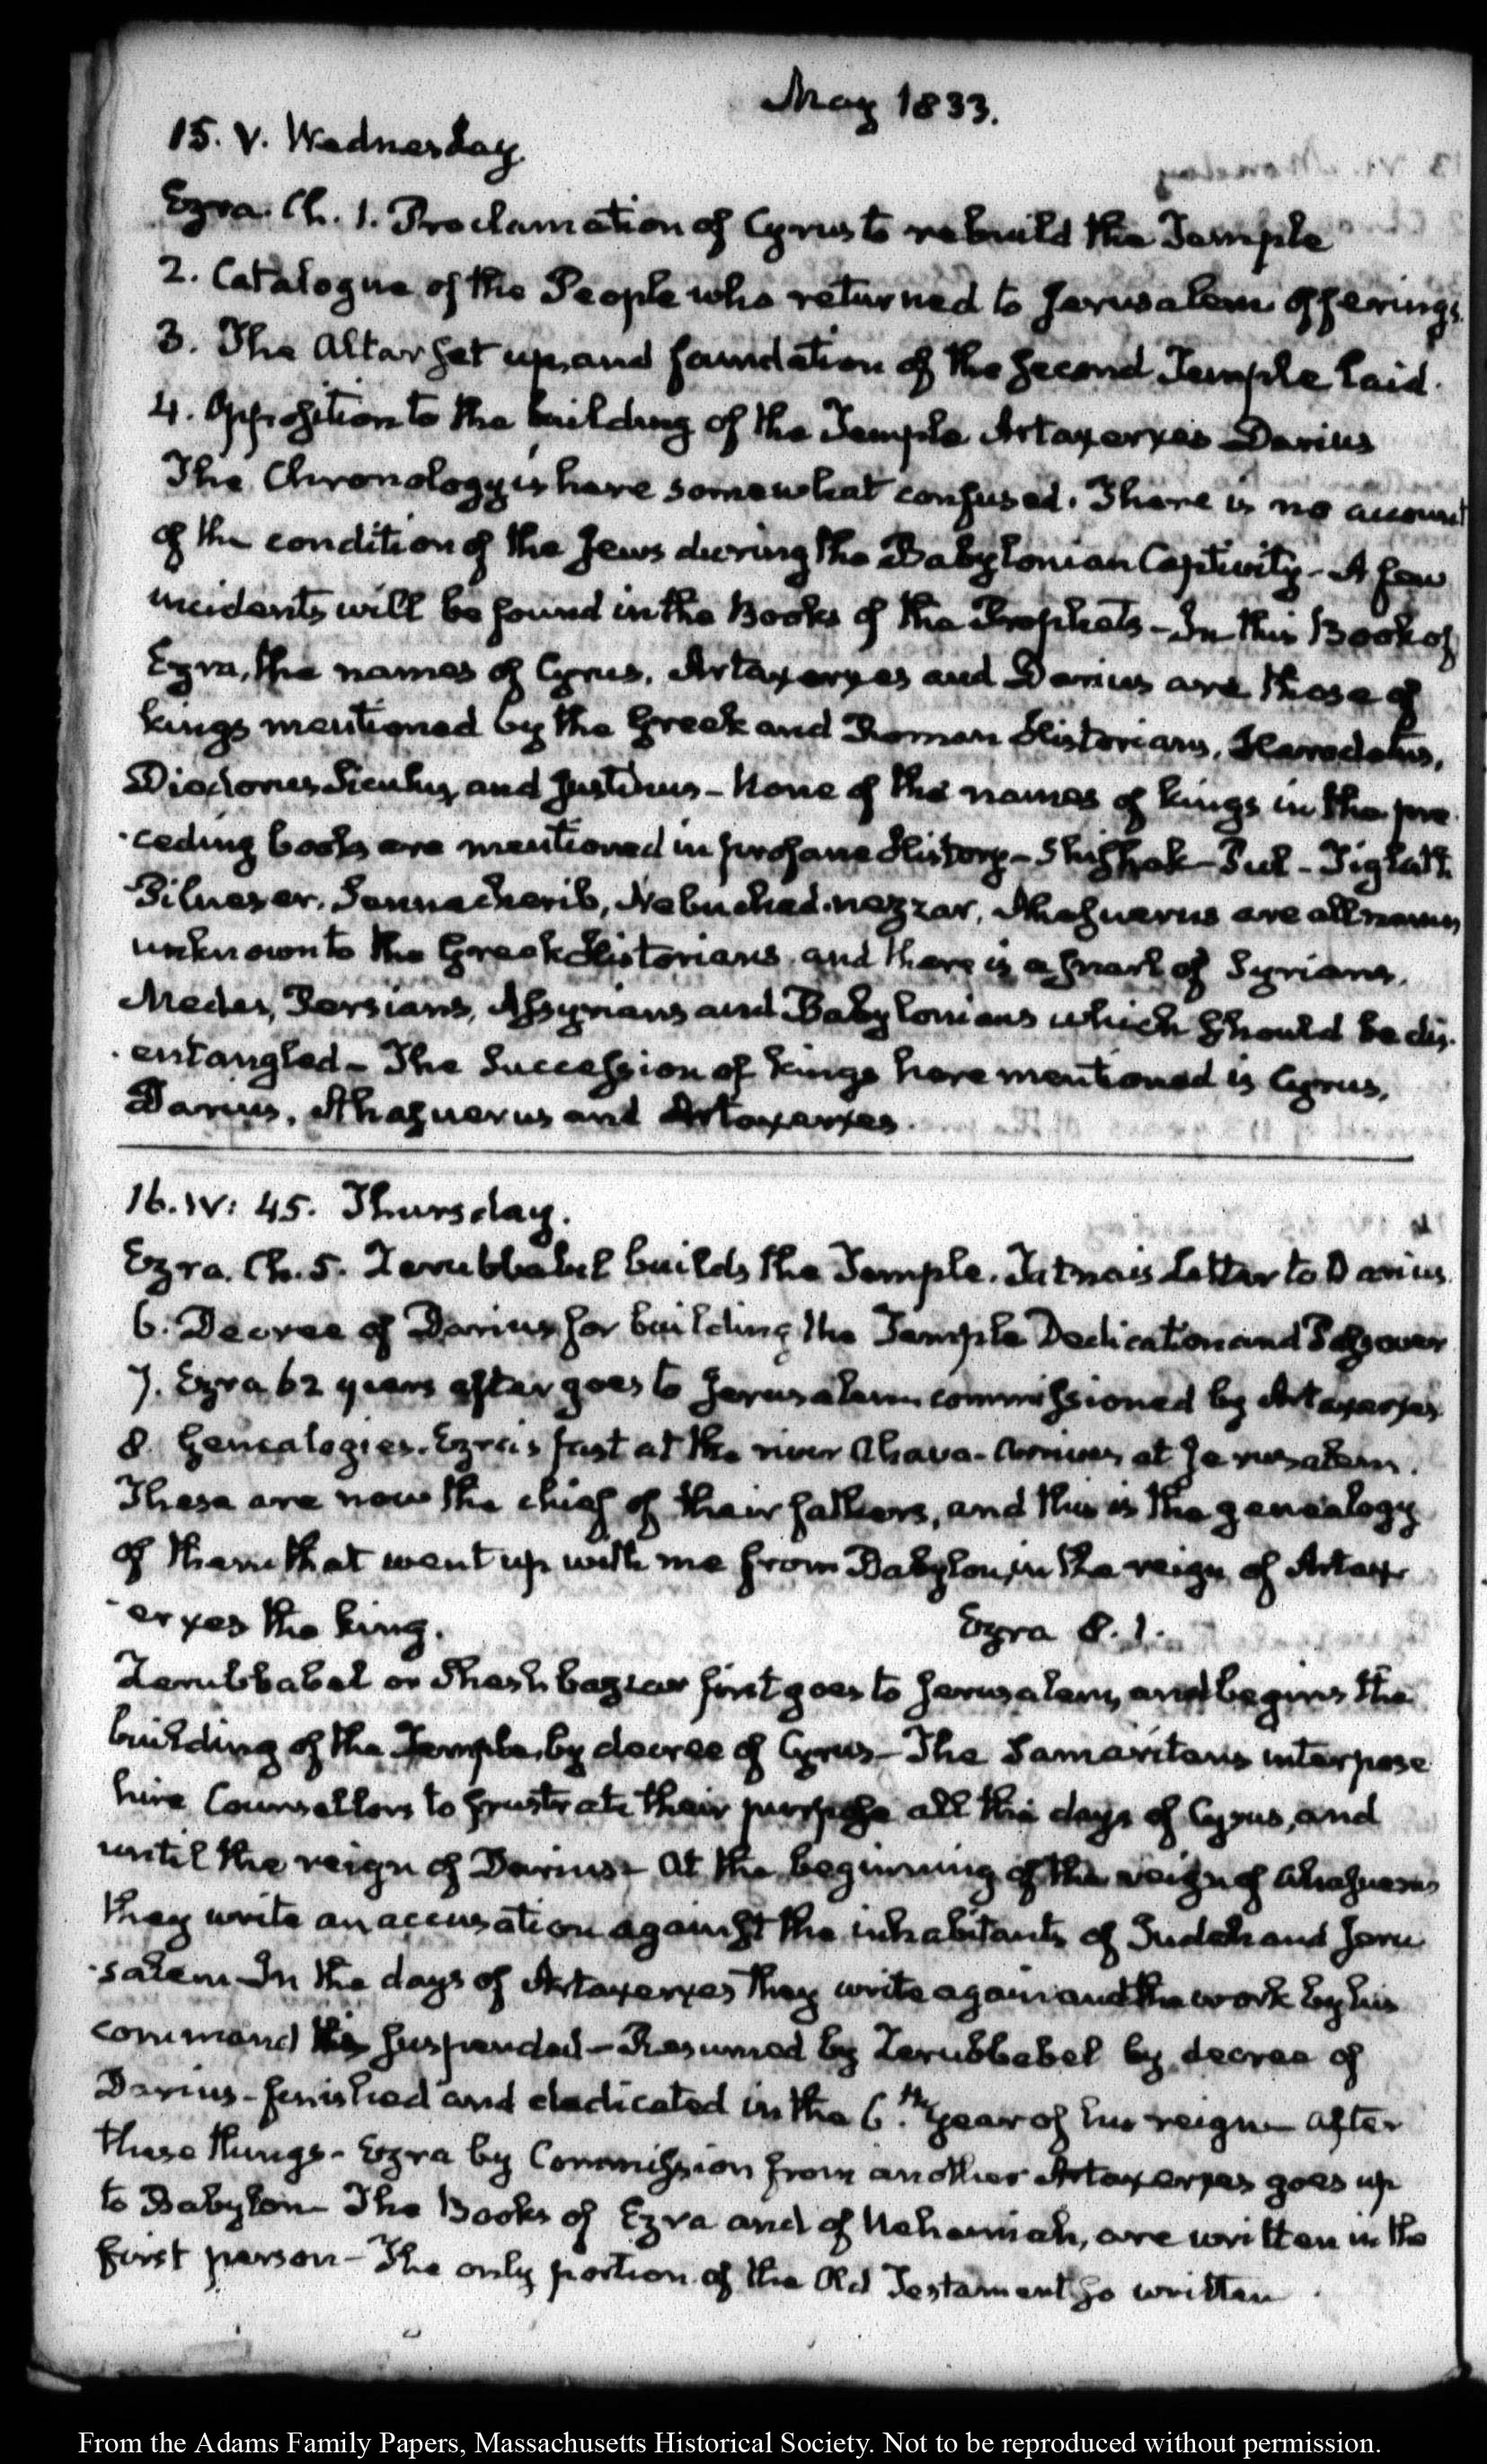 May 1833.
15. V. Wednesday.
Ezra. Ch. 1. Proclamation of Cyrus to rebuild the Temple
2. Catalogue of the People who returned to Jerusalem offerings.
3. The Altar set up, and foundation of the second Temple laid.
4. Opposition to the building of the Temple Artaxerxes Darius
The Chronology is here somewhat confused. There is no account
of the condition of the Jews during the Babylonian Captivity - A few
incidents will be found in the Books of the Prophets - In this Book of
Ezra, the names of Cyrus, Artaxerxes and Darius are those of
kings mentioned by the Greek and Roman Historians, Herodotus,
Diodorus Siculus, and Justinus - None of the names of kings in the pre
ceding books are mentioned in profane History - Shishak - Pul - Tiglath
Pilneser, Sennacherib, Nebuchadnezzar, Ahasuerus are all names
unknown to the Greek Historians, and there is a snarl of Syrians,
Medes, Persians, Assyrians and Babylonians which should be dis-
entangled - The succession of kings here mentioned is Cyrus,
Darius, Ahasuerus and Artaxerxes.
16. IV: 45. Thursday.
Ezra. Ch. 5. Zerubbabel builds the Temple. Tatnais Letter to Darius
6. Decree of Darius for building the Temple Dedication and Passover
7. Ezra 62 years after goes to Jerusalem commissioned by Artaxerxes
8. Genealogies. Ezra's fast at the river Ahava - Arrives at Jerusalem.
These are now the chief of their fathers, and this is the genealogy
of them that went up with me from Babylon, in the reign of Artax-
erxes the king. Ezra 8. 1.
Zerubbabel or Sheshbazzar first goes to Jerusalem, and begins the
building of the Temple, by decree of Cyrus - The Samaritans interpose
hire Counsellors to frustrate their purpose all the days of Cyrus, and
until the reign of Darius - At the beginning of the reign of Ahasuerus
they write an accusation against the inhabitants of Judah and Jeru
salem - In the days of Artaxerxes they write again and the work by his
command is suspended - Resumed by Zerubbabel by decree of
Darius - finished and dedicated in the 6.th year of his reign - After
these things - Ezra by Commission from another Artaxerxes goes up
to Babylon - The Books of Ezra and of Nehemiah, are written in the
first person - The only portion of the Old Testament so written
From the Adams Family Papers, Massachusetts Historical Society. Not to be reproduced without permission.